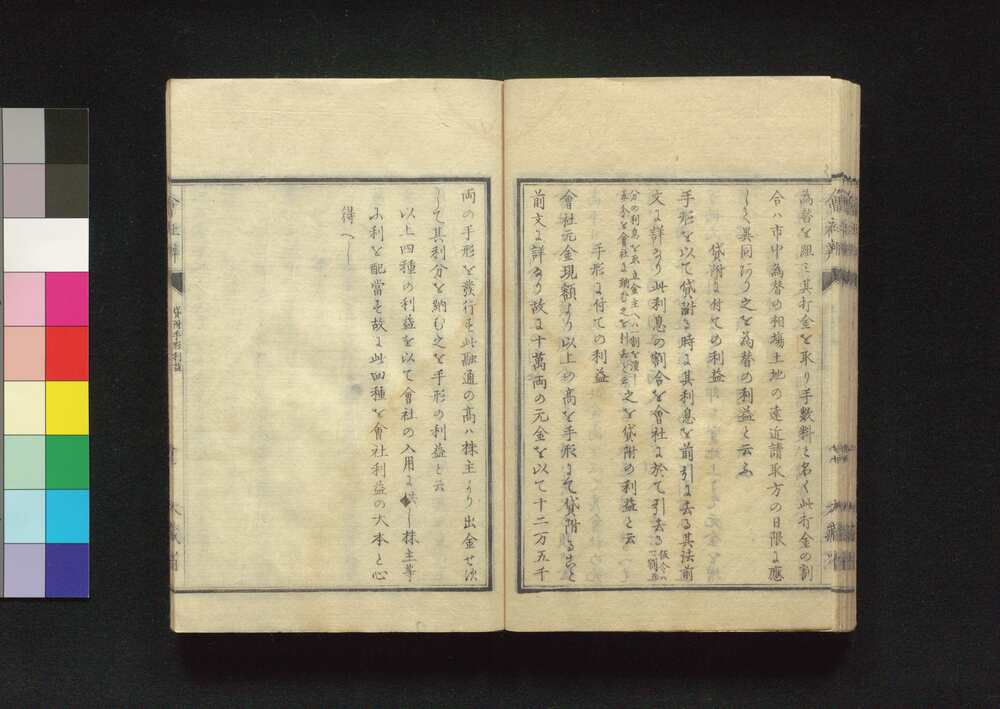 為替を組立其打金を取り手數料と名く此打金の割
合ハ市中為替の相場土地の遠近請取方の日限に應
して異同あり之を為替の利益と云ふ
貸附に付ての利益
手形を以て貸附る時は其利息を前引に去る其法前
文に詳なり此利息の割合を會社に於て引去る
分の利息を
會社に納む之を 之を貸附の利益と云
手形に付ての利益
會社元金現額より以上の高を手形にて貸附ること
前文に詳なり故に十萬両の元金を以て十二万五千
両の手形を發行も此融通の高ハ株主より出金せす
して其利分を納む之を手形の利益と云
以上四種の利益を以て會社の入用に供し株主等
に利を配當も故に此四種を會社利益の大本と心
得へし
會社辨
貸附手形利益